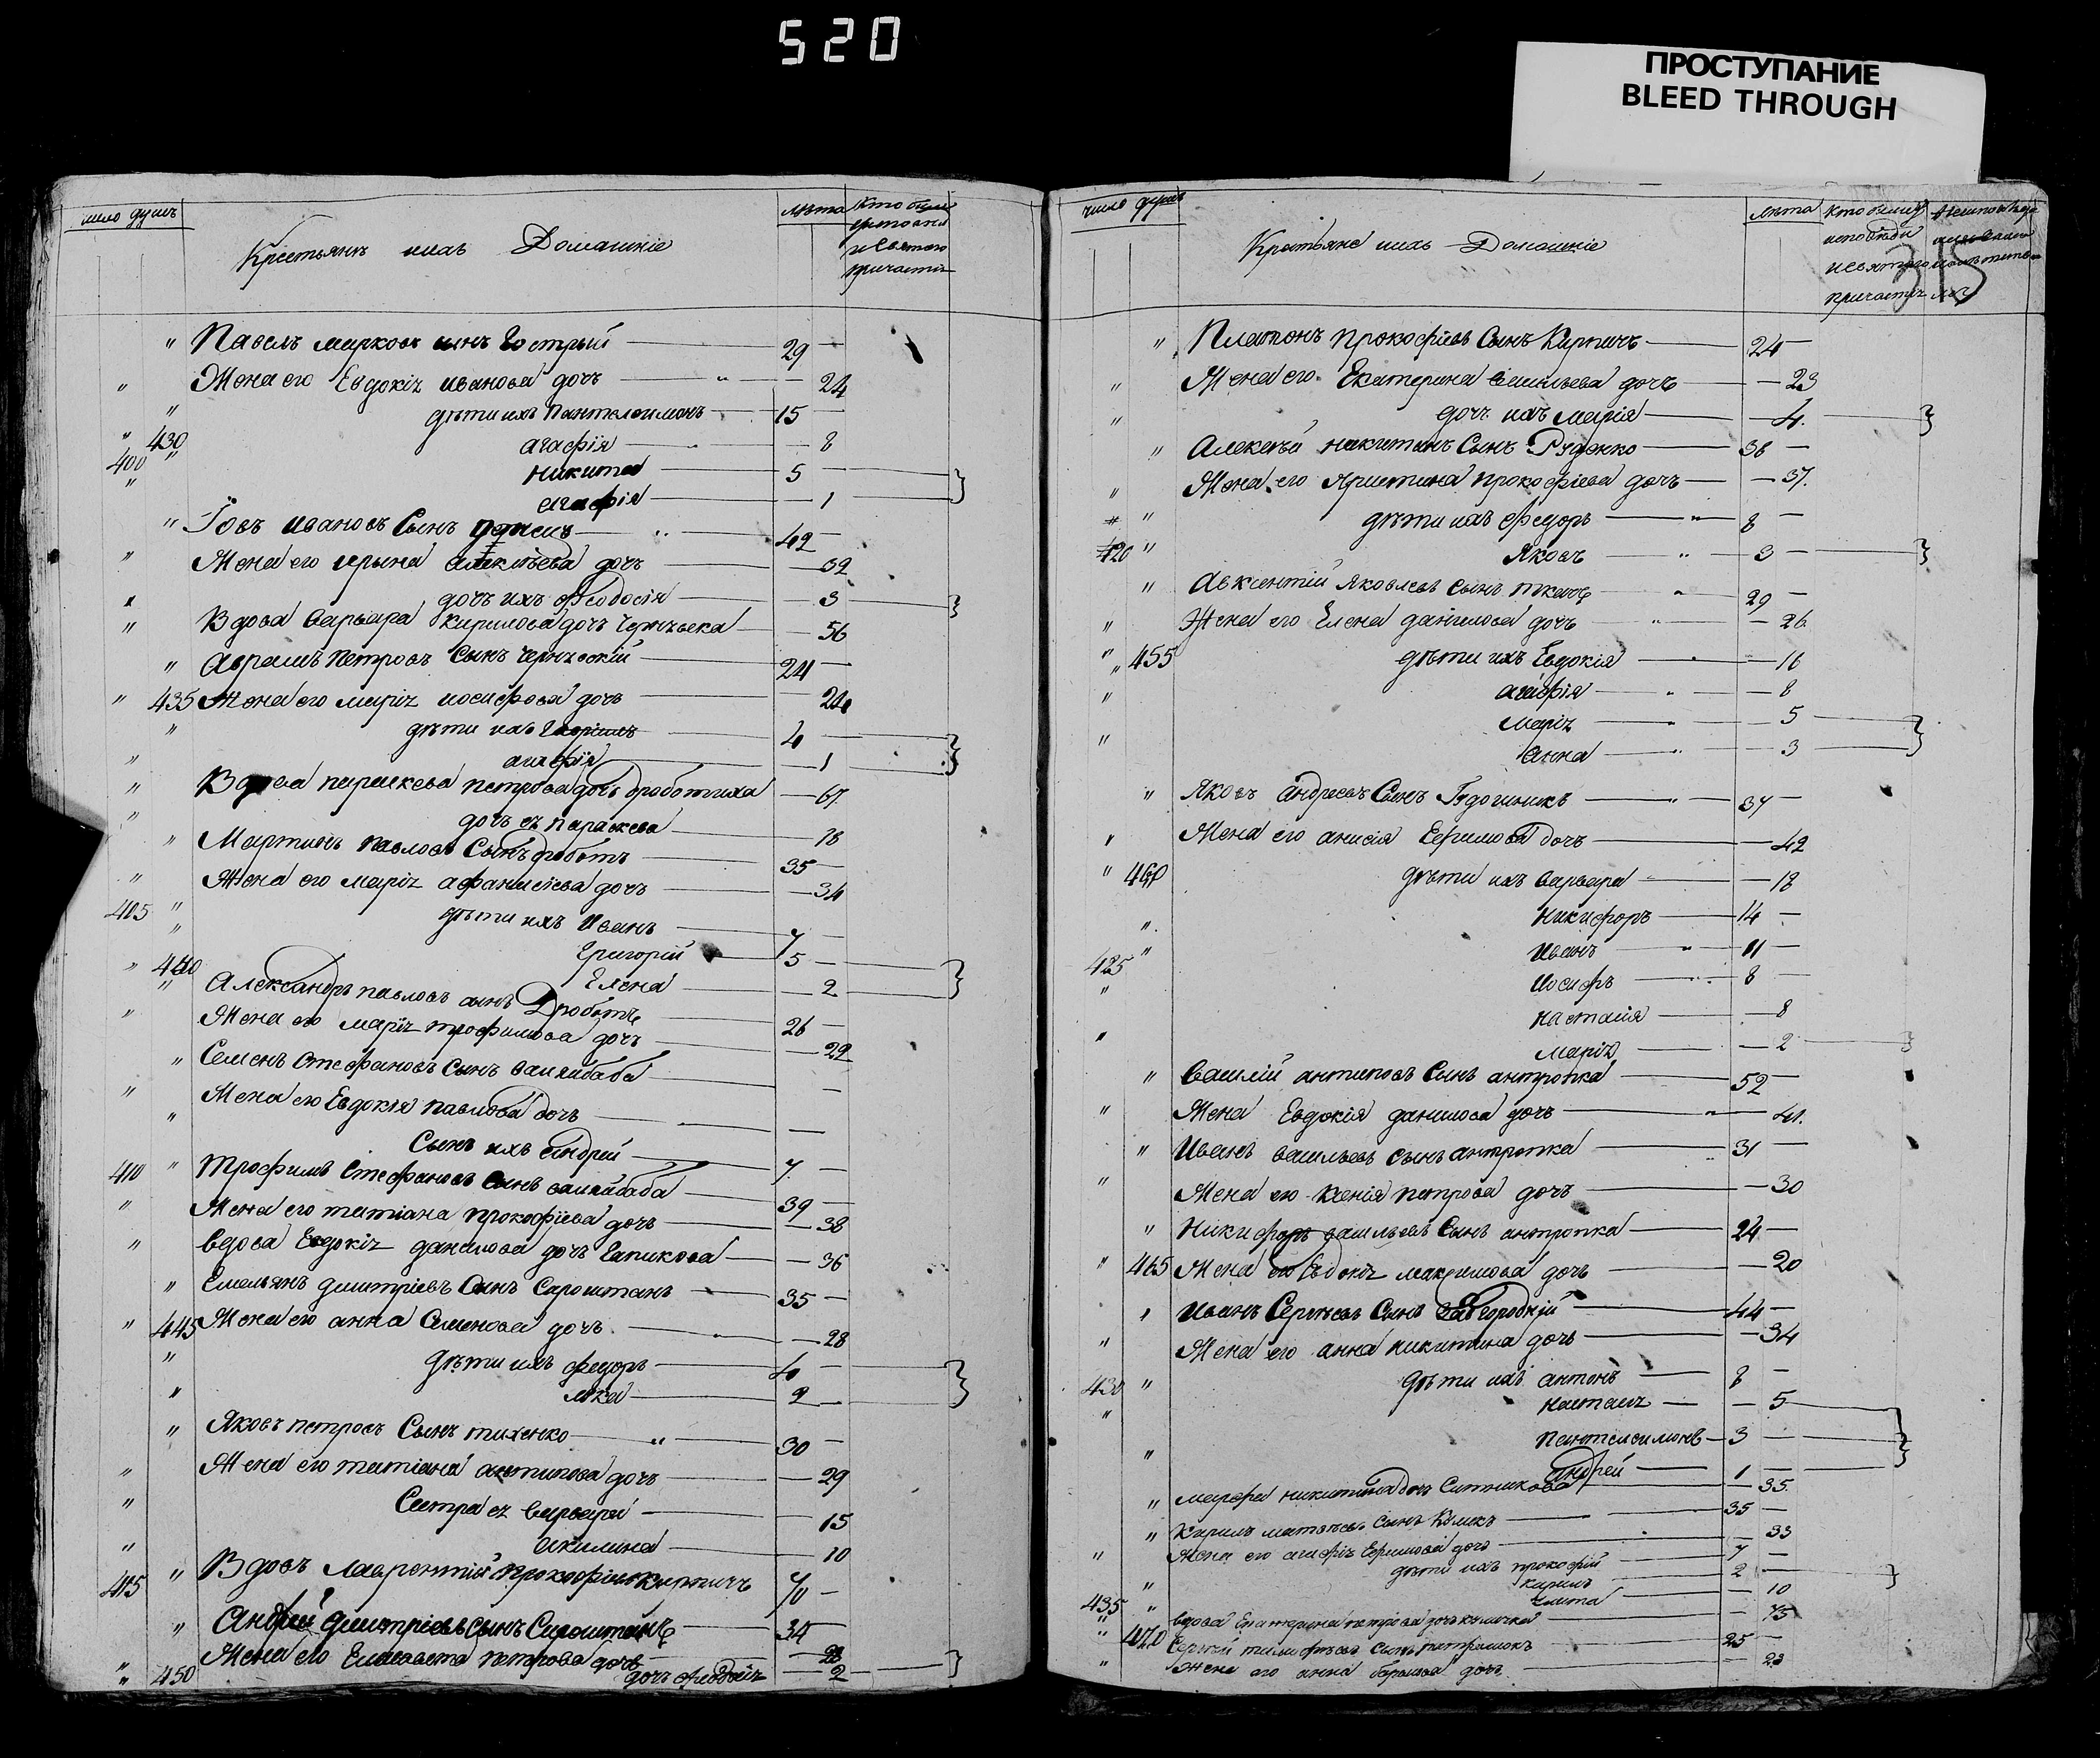 520
ПРОСТУПАНИЕ
BLEED THROUGH
число душъ
лѣта
Крестьянъ ихъ Домашніе
Павелъ Марковъ сынъ Гострый 29
Жена его Евдокія Иванова дочь 24
дѣти ихъ Пантелеимонъ 15
430 Агафія 8
400 Никита 5
Агафія 1
Іовъ Ивановъ Сынъ 42
Жена его Ирына Алексѣева дочь 32
дочь ихъ Феодосія 3
Вдова Варвара Кирилова дочь 56
Аврамъ Петровъ Сынъ 24
435 Жена его Марія Иосифова дочь 24
дѣти ихъ 4
Агафія 1
Вдова Параскева Петрова дочь Дроботиха 67
дочь ея Параскева 18
Мартинъ Павловъ Сынъ Дроботъ 35
Жена его Марія Афанасіева дочь 34
405 дѣти ихъ Иванъ 7
Григорій 5
440 Елена 2
Александръ Павловъ сынъ Дроботъ 26
Жена его Марія Трофимова дочь 29
Семенъ Стефановъ Сынъ —
Жена его Евдокія Павлова дочь —
Сынъ ихъ Андрей 7
410 Трофимъ Стефановъ Сынъ 39
Жена его Татіана Прокофіева дочь 38
Вдова Евдокія Данилова дочь 36
Емельянъ Димитріевъ Сынъ Сароштанъ 35
445 Жена его Анна Семенова дочь 28
Дѣти ихъ Федоръ 4
2
Яковъ Петровъ Сынъ Тихенко 30
Жена его Татіана Антипова дочь 29
Сестра ея Варвара 15
Акилина 10
415 Вдовъ Лаврентій Прокофіевъ Кирпичъ 70
Андрей Димитріевъ Сынъ Сароштанъ 34
Жена его Елисавета Петрова дочь 28
450 дочь Феодосія 2
число душъ
лѣта
315
Крестьяне ихъ Домашніе
Платонъ Прокофіевъ Сынъ Кирпичъ 24
Жена его Екатерина Васильева дочь 23
дочь ихъ Марія 4
Алексѣй Никитинъ Сынъ Руденко 38
Жена его Христина Прокофіева дочь 37
дѣти ихъ Федоръ 8
420 Яковъ 3
Авксентій Яковлевъ Сынъ Ткачъ 29
Жена его Елена Данилова дочь 26
455 дѣти ихъ Евдокія 16
Агафія 8
Марія 5
Анна 3
Яковъ Андреевъ Сынъ 37
Жена его Анисія Ефимова дочь 42
460 дѣти ихъ Варвара 18
Никифоръ 14
425 Иванъ 11
Иосифъ 8
Настасія 8
Марія 2
Василій Антиповъ Сынъ Антропка 52
Жена Евдокія Данилова дочь 41
Иванъ Васильевъ Сынъ Антропка 31
Жена его Ксенія Петрова дочь 30
Никифоръ Васильевъ Сынъ Антропка 24
465 Жена его Евдокія Максимова дочь 20
Иванъ Сергѣевъ Сынъ Завгородній 44
Жена его Анна Никитина дочь 34
430 дѣти ихъ Антонъ 8
Настасія 5
Пантелеимонъ 3
Андрей 1
Марфа Никитина дочь Ситникова 35
Кирилъ Матвѣевъ Сынъ 35
Жена его Агафія Ефимова дочь 33
дѣти ихъ Прокофій 7
Кирилъ 2
435 10
Вдова Екатерина Петрова дочь 75
470 Сергѣй Тимофѣевъ Сынъ 25
Жена его Анна дочь 23